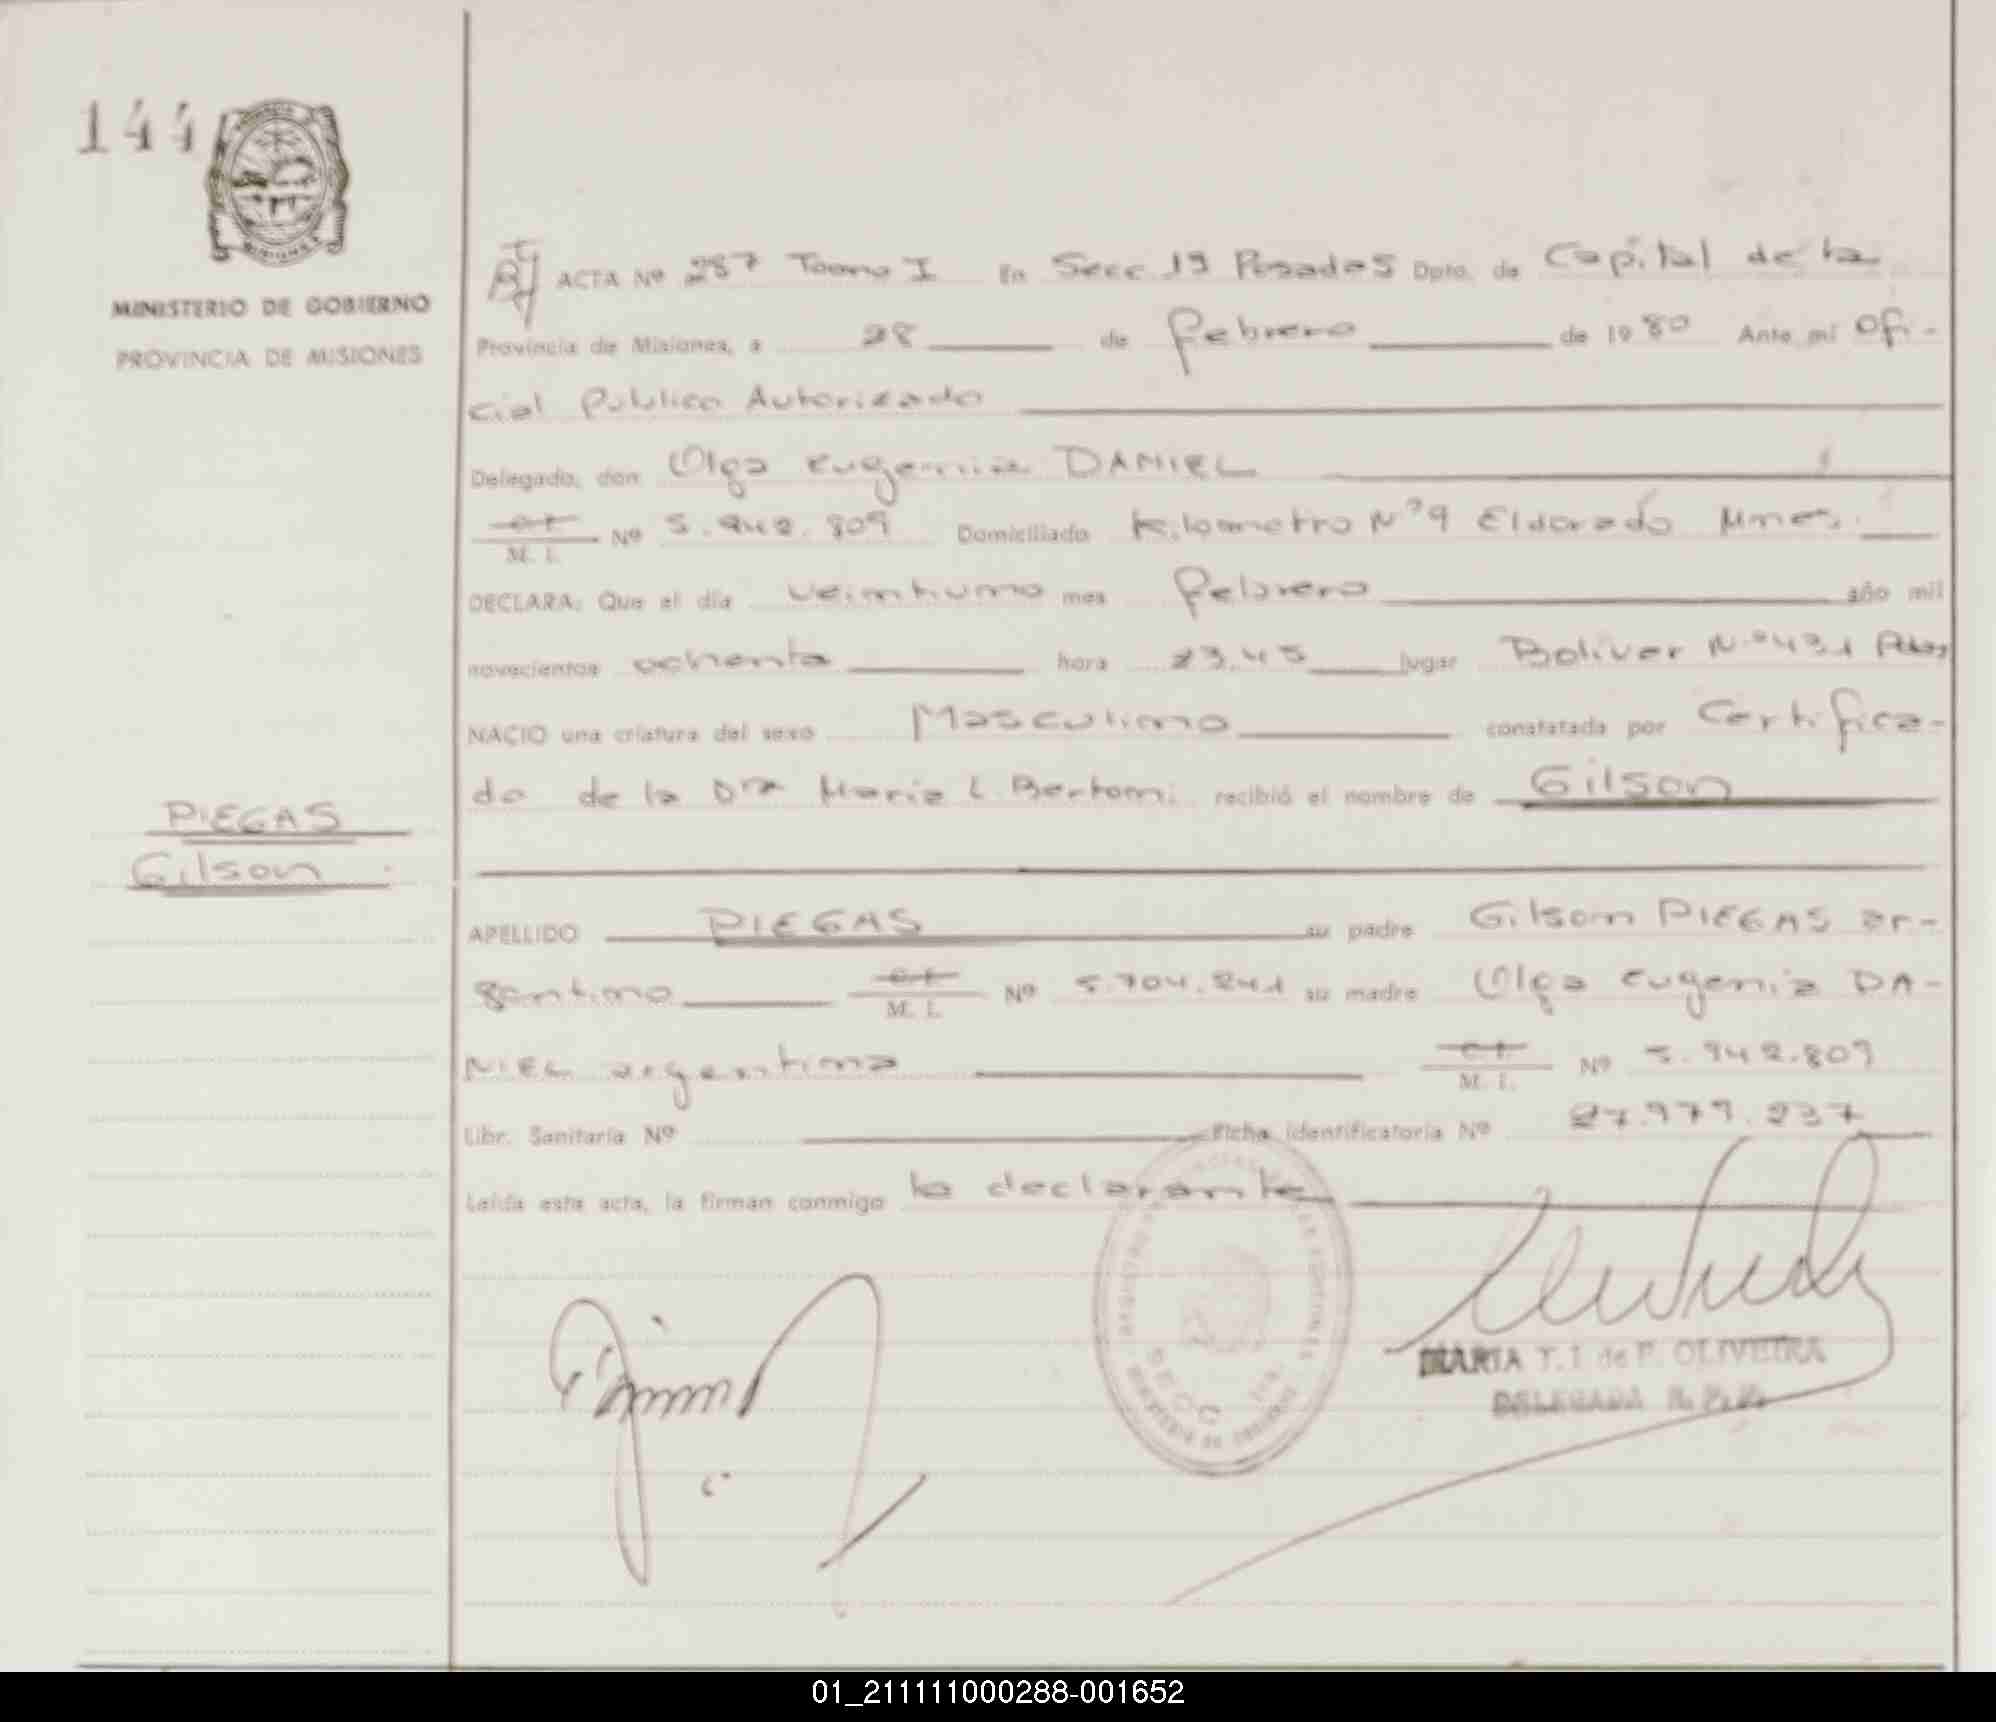 144
MINISTERIO DE GOBIERNO
PROVINCIA DE MISIONES
ACTA Nº 287 Tomo I En Secc 1ª Posadas Dpto. de Capital de la
Provincia de Misiones, a 28 de febrero de 1980 Ante mi Ofi-
cial Publico Autorizado
Delegado, don Olga Eugenia DANIEL
M. I. Nº 5.942.809 Domiciliado Kilometro Nº 9 Eldorado Mnes.
DECLARA: Que el día veintiuno mes febrero año mil
novecientos ochenta hora 23.45 lugar Bolivar Nº 431 Pdas
NACIO una criatura del sexo Masculino constatada por Certifica-
do de la Dra Maria L. Bertoni recibió el nombre de Gilson
PIEGAS
Gilson
APELLIDO PIEGAS su padre Gilson PIEGAS ar-
gentino M. I. Nº 5.704.241 su madre Olga Eugenia DA-
NIEL argentina M. I. Nº 5.942.809
Libr. Sanitaria Nº Ficha identificatoria Nº 27.979.237
Leída esta acta, la firman conmigo la declarante
MARIA T. I de F. OLIVEIRA
DELEGADA
MINISTERIO DE GOBIERNO
01_211111000288-001652